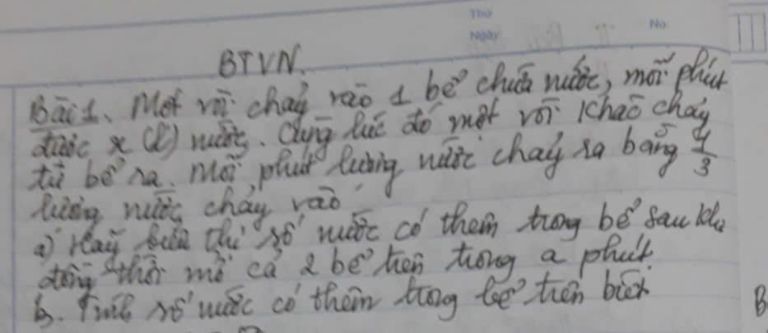 Thứ
Ngày
No.
BTVN.
Bài 1. Một vòi chảy vào 1 bể chứa nước, mỗi phút
được x (l) nước. Cùng lúc đó một vòi khác chảy
từ bể ra. Mỗi phút lượng nước chảy ra bằng 1/3
lượng nước chảy vào
a) Hãy biểu thị số nước có thêm trong bể sau khi
đồng thời mở cả 2 bể trên trong a phút.
b. Tính số nước có thêm trong bể trên biết
B